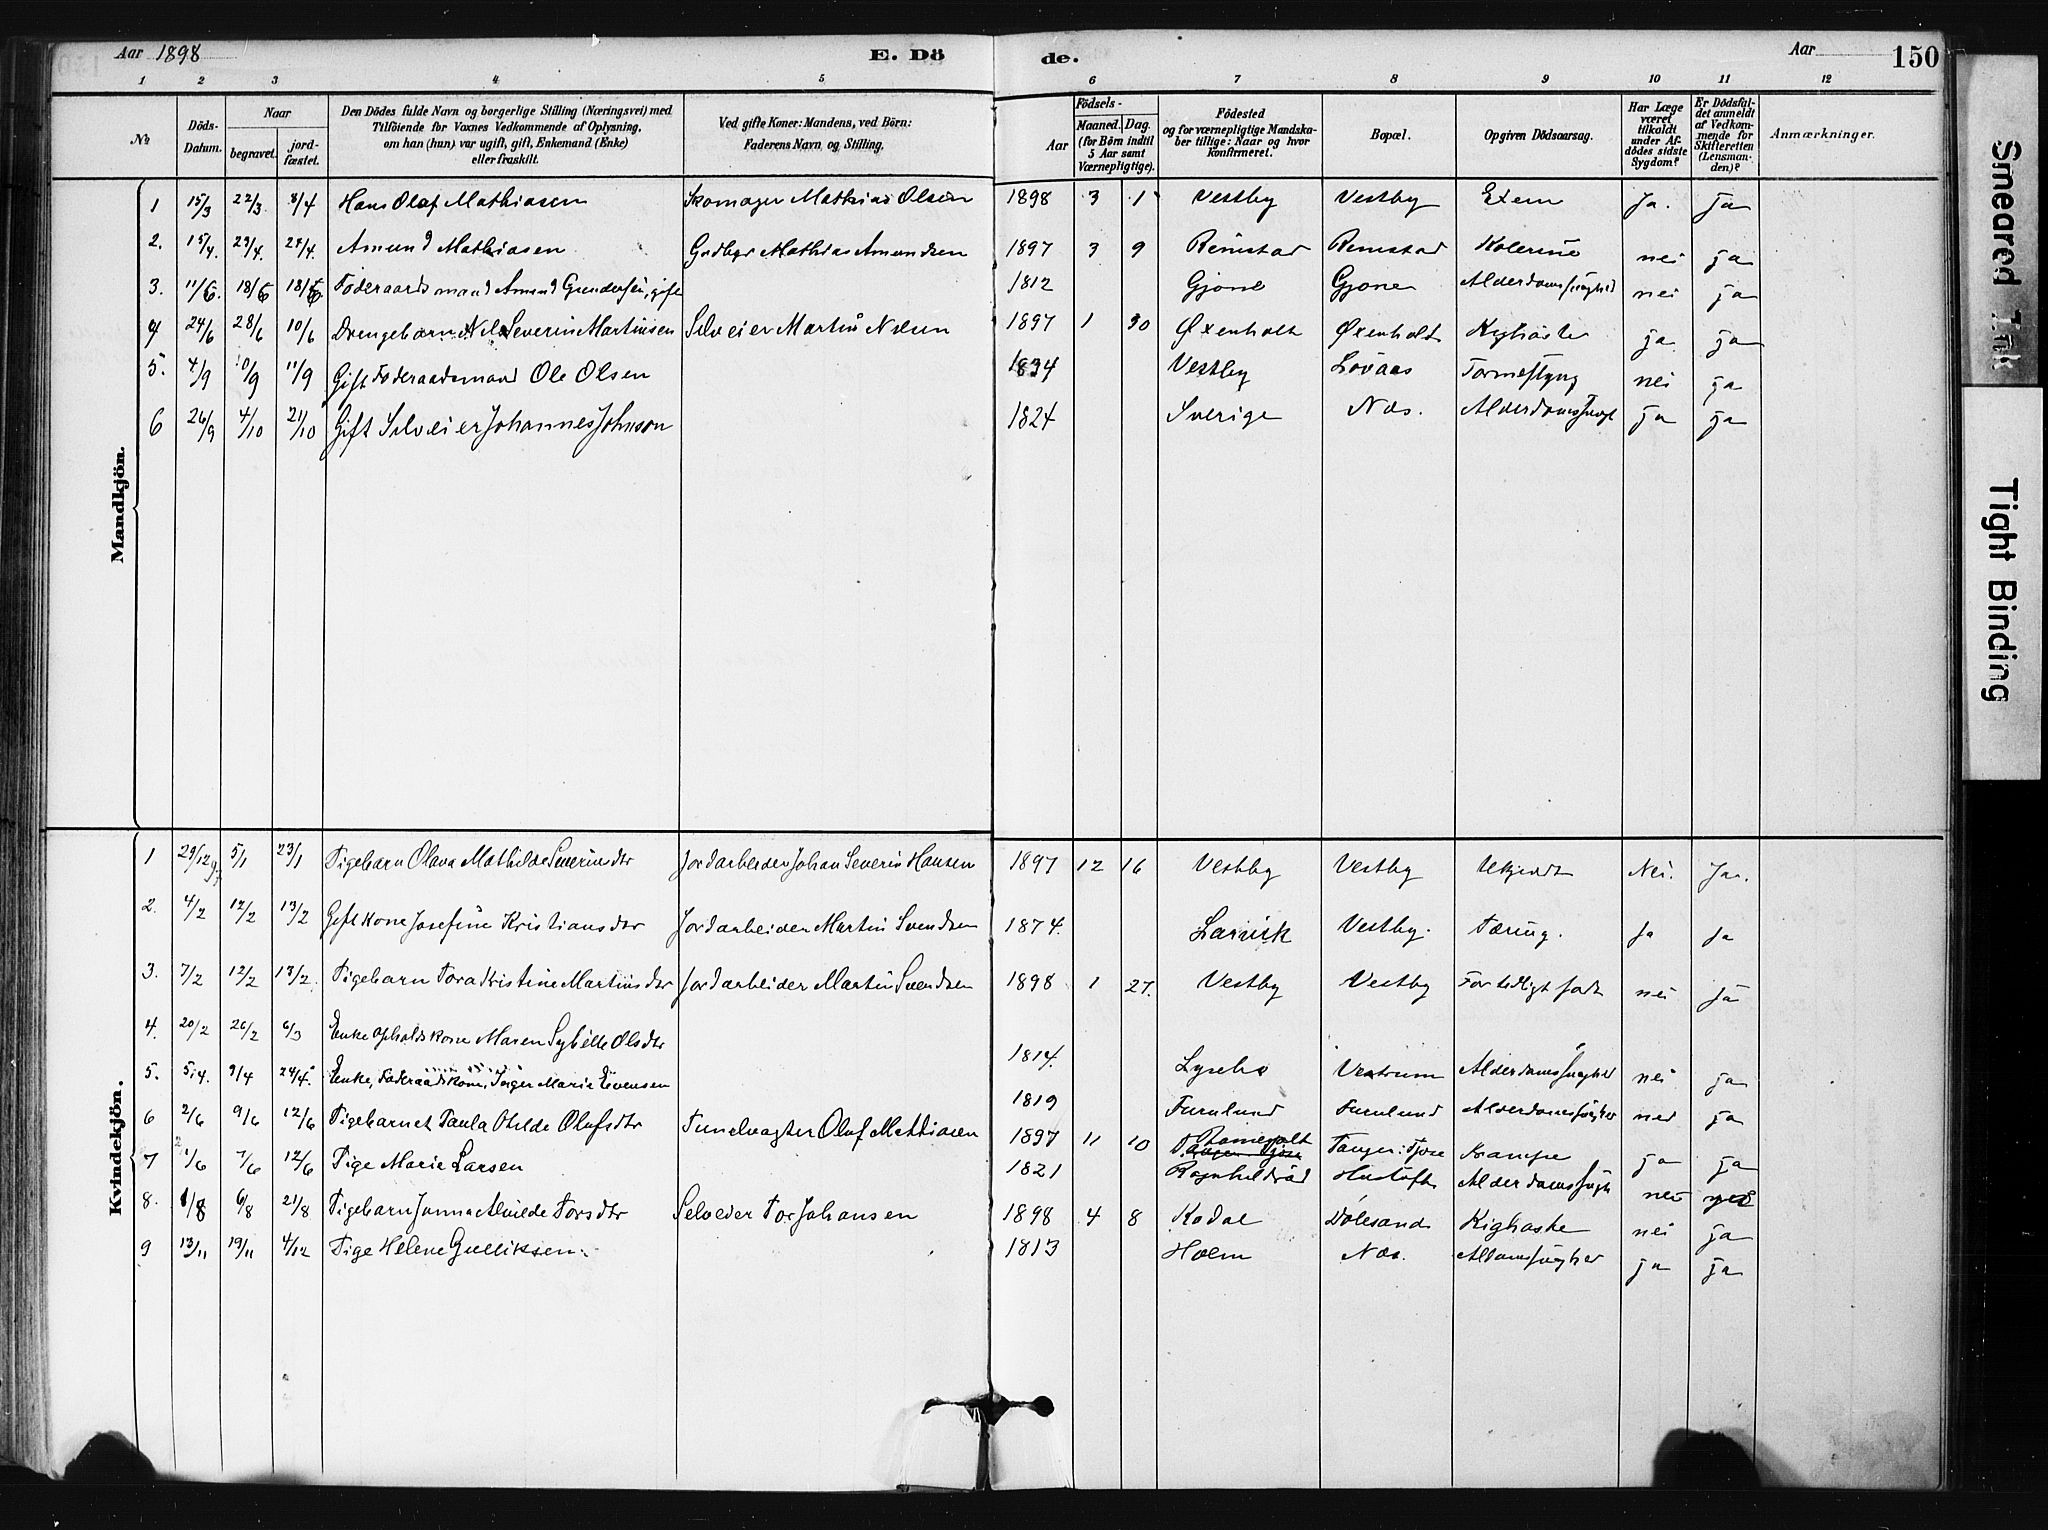 Aar 1898 E. Dö de. Aar 150
1 2 3 4 5 6 7 8 9 10 11 12
№ Döds-Datum. Naar begravet. jordfæstet. Den Dödes fulde Navn og borgerlige Stilling (Næringsvei) med Tilföiende for Voxnes Vedkommende af Oplysning, om han (hun) var ugift, gift, Enkemand (Enke) eller fraskilt. Ved gifte Koner: Mandens, ved Börn: Faderens Navn og Stilling. Aar Födsels-Maaned. Dag. (for Børn indtil 5 Aar samt Værnepligtige). Födested og for værnepligtige Mandskaber tillige: Naar og hvor Konfirmeret. Bopæl. Opgiven Dödsaarsag. Har Læge været tilkaldt under Afdödes sidste Sygdom? Er Dödsfaldet anmeldt af Vedkommende for Skifteretten (Lensmanden)? Anmærkninger.
Mandkjön.
1 15/3 22/3 8/4 Hans Olaf Mathiasen Skomager Mathias Olsen 1898 3 1 Vestby Vestby Exem Ja. Ja
2. 15/4. 23/4. 24/4. Amund Mathiasen Gedbgr Mathias Amundsen 1897 3 9 Rimstad Rimstad Kolerine nei ja
3. 11/6. 18/6 18/6. Föderaadsmand Amund Gundersen, gift 1812 Gjone Gjone nei ja
4 24/6 28/6 10/6 Drengebarn Nils Severin Martinsen Selveier Martin Nilsen 1897 1 30 Øxenholt Øxenholt Kighoste ja ja
5. 4/9 10/9 11/9 Gift Föderaadsmand Ole Olsen 1834 Vestby Lövaas Tarmeslyng nei ja
6 26/9 4/10 21/10 Gift Selveier Johannes Johnson 1824 Sverige Næs. ja ja
Kvindekjön.
1 29/12 97 5/1 23/1 Pigebarn Olava Mathilde Severinsdtr Jordarbeider Johan Severin Hansen 1897 12 16 Vestby Vestby Ukjendt Nei. Ja.
2. 4/2 12/2 13/2 Gift Kone Josefine Kristiansdtr Jordarbeider Martin Svendsen 1874. Larvik Vestby. Tæring. Ja Ja
3. 7/2 12/2 13/2. Pigebarn Tora Kristine Martinsdtr Jordarbeider Martin Svendsen 1898 1 27. Vestby Vestby For tidligt født nei Ja
4. 20/2 26/2 6/3 Enke Opholdskone Maren Sybille Olsdtr 1814. Lysebo Vestrum nei ja
5. 5/4. 9/4 24/4. Enke, Föderaadskone, Inger Marie Evensen 1819 Furulund Furulund nei ja
6 2/6 9/6 12/6 Pigebarnet Paula Otilde Olufsdtr Tunelvagter Oluf Mathiasen 1897 11 10 Tangen i Tjose Krampe ja ja
7 1/6 7/6 12/6 Pige Marie Larsen 1821 nei nei
8. 1/8 6/8 21/8 Pigebarn Janna Alvilde Torsdtr Selveier Tor Johansen 1898 4 8 Kodal Dolesand Kighoste nei ja
9 13/11 19/11 4/12 Pige Helene Gulliksen. 1813 Holm Næs. ja ja
Smeared Ink
Tight Binding